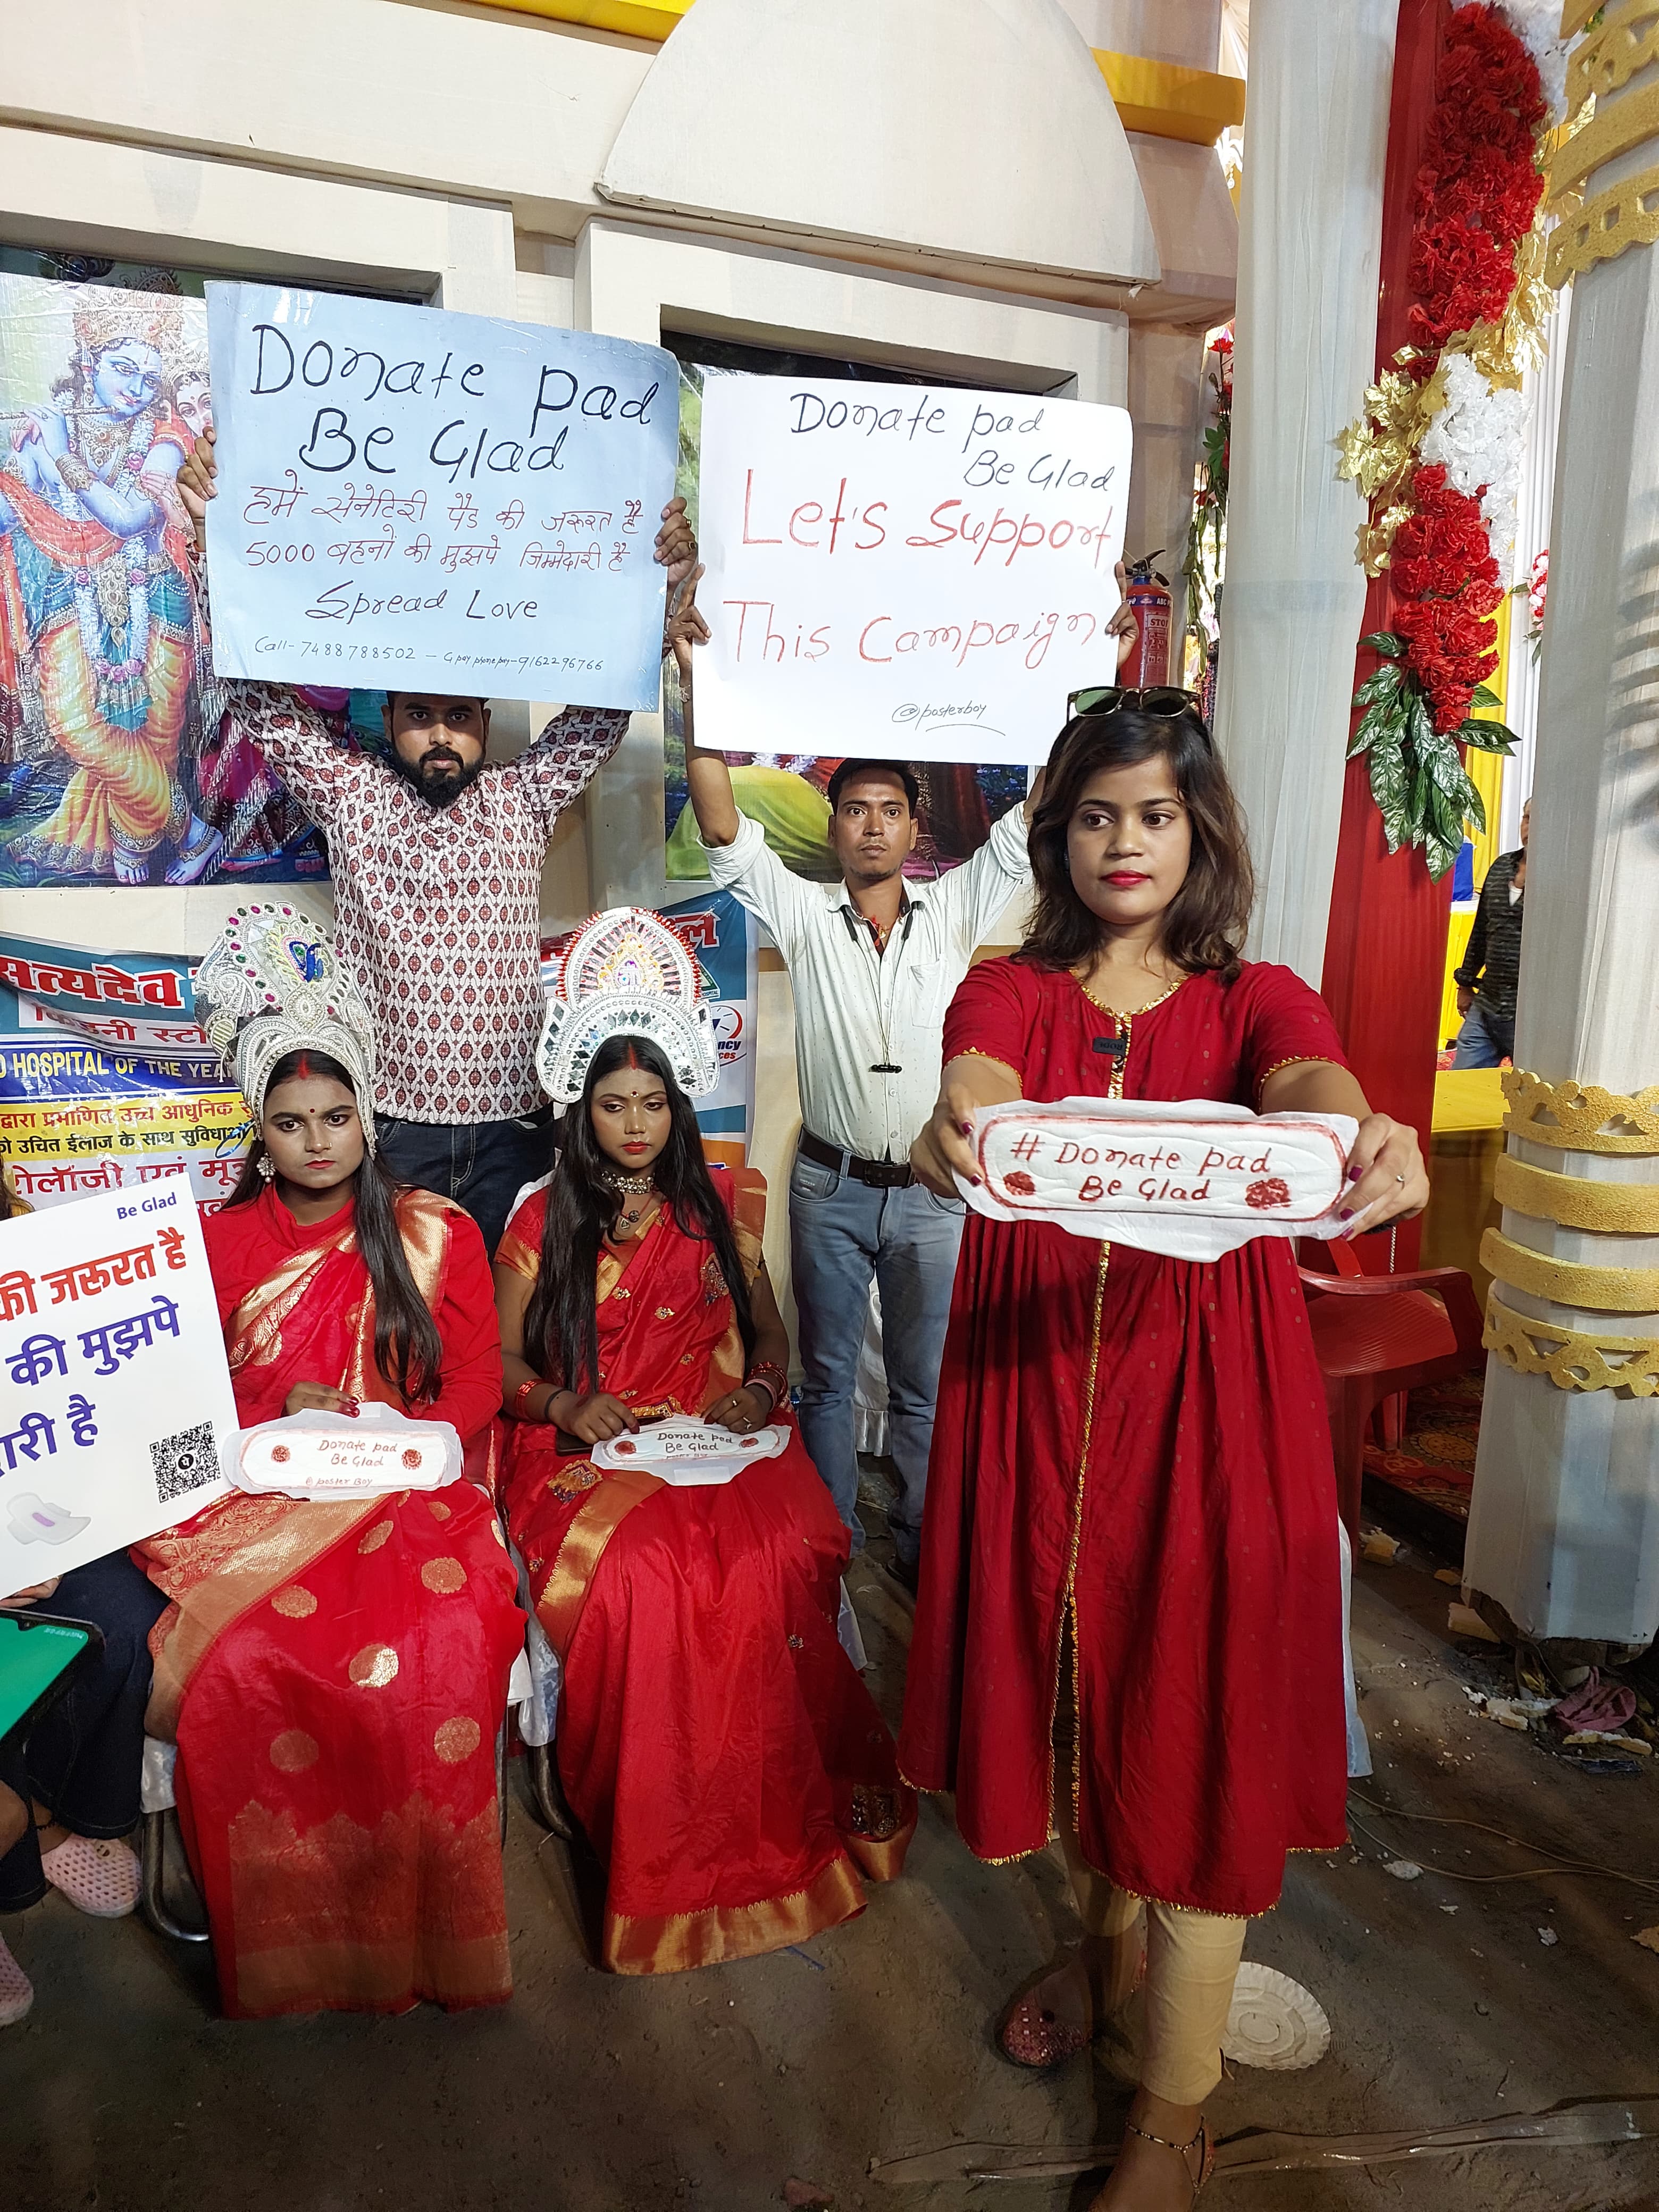 Donate pad
Be Glad
हमें सेनेटिरी पैड की जरूरत है
5000 बहनों की मुझपे जिम्मेदारी है
Spread Love
Call-7488788502 - G pay phone pay-9162296766
Donate pad
Be Glad
Let's Support
This Campaign
@posterboy
STOP
सत्यदेव
HOSPITAL OF THE YEA
द्वारा प्रमाणित उच्च आधुनिक
को उचित ईलाज के साथ सुविधा
एवं
# Donate pad
Be Glad
Be Glad
की जरूरत है
की मुझपे
है
Donate pad
Be Glad
@poster Boy
Donate pad
Be Glad